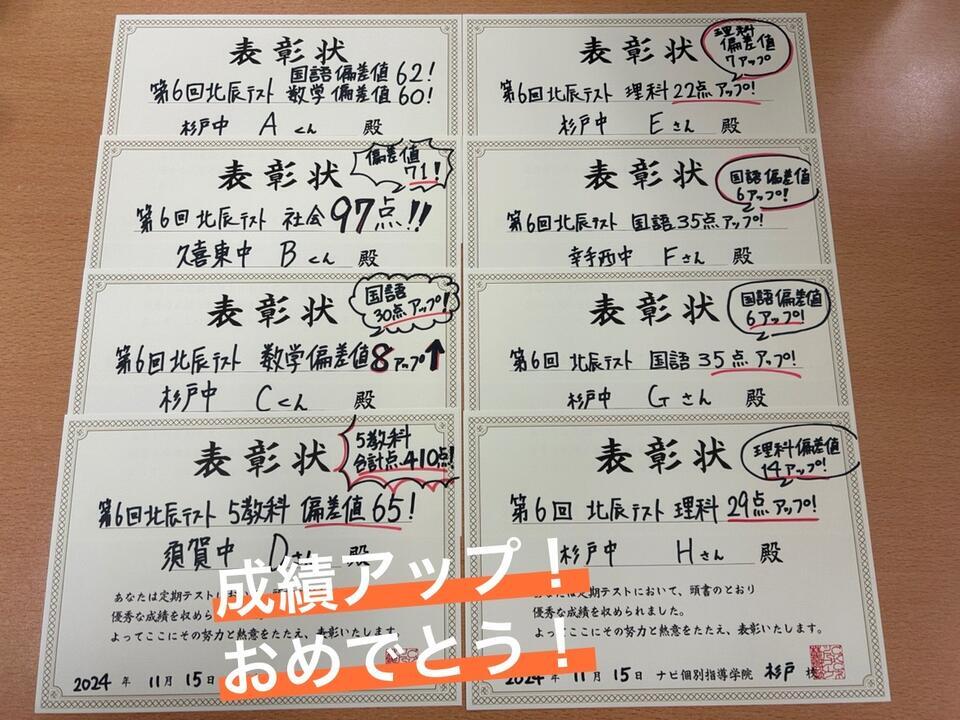 表彰状
国語偏差値 62!
第6回北辰テスト 数学偏差値 60!
杉戸中 Aくん 殿
表彰状
偏差値
71!
第6回北辰テスト 社会 97点!!
久喜東中 Bくん 殿
表彰状
国語
30点アップ!
第6回北辰テスト 数学偏差値8アップ↑
杉戸中 Cくん 殿
表彰状
5教科
合計点410点!
第6回北辰テスト 5教科 偏差値65!
須賀中 Dさん 殿
あなたは定期テストにおいて、
優秀な成績を収めら
よってここにその努力と熱意をたたえ、表彰いたします。
2024 年 11月 15日
表彰状
理科
偏差値
7アップ
第6回北辰テスト 理科 22点アップ!
杉戸中 Eさん 殿
表彰状
国語偏差値
6アップ!
第6回北辰テスト 国語35点アップ!
幸手西中 Fさん 殿
表彰状
国語偏差値
6アップ!
第6回 北辰テスト 国語 35点アップ!
杉戸中 Gさん 殿
表彰状
理科偏差値
14アップ!
第6回 北辰テスト 理科 29点アップ!
杉戸中 Hさん 殿
あなたは定期テストにおいて、頭書のとおり
優秀な成績を収められました。
よってここにその努力と熱意をたたえ、表彰いたします。
2024 年 11月 15日 ナビ個別指導学院 杉戸 校
成績アップ！
おめでとう！